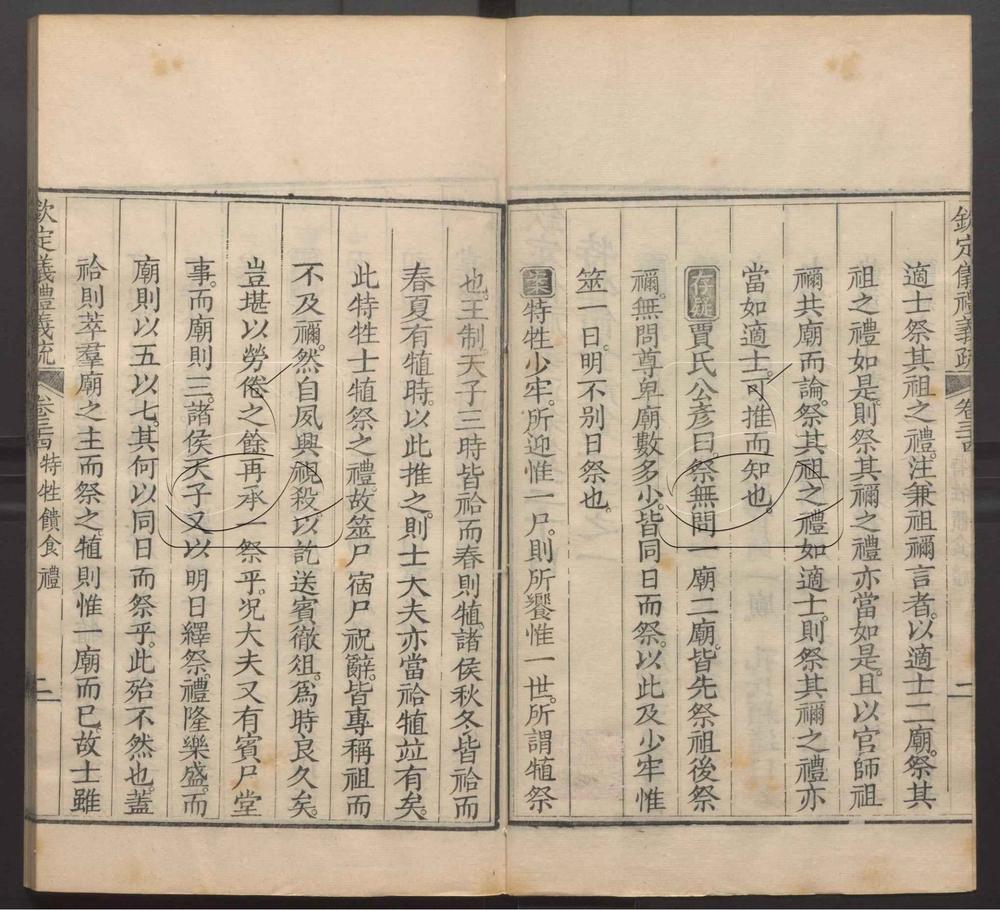 欽定儀禮義疏 卷三十四 特牲饋食禮 二
適士祭其祖之禮。注兼祖禰言者。以適士二廟。祭其
祖之禮如是。則祭其禰之禮亦當如是。且以官師祖
禰共廟而論。祭其祖之禮如適士。則祭其禰之禮亦
當如適士。可推而知也。
存疑賈氏公彥曰。祭無問一廟二廟。皆先祭祖後祭
禰。無問尊卑廟數多少。皆同日而祭。以此及少牢惟
筮一日。明不別日祭也。
案特牲少牢。所迎惟一尸。則所饗惟一世。所謂犆祭
也。王制。天子三時皆祫而春則犆。諸侯秋冬皆祫而
春夏有犆時。以此推之。則士大夫亦當祫犆竝有矣。
此特牲士犆祭之禮。故筮尸宿尸祝辭。皆專稱祖而
不及禰。然自夙興視殺以訖送賓徹俎。為時良久矣。
豈堪以勞倦之餘再承一祭乎。况大夫又有賓尸堂
事。而廟則三。諸侯天子又以明日繹祭。禮隆樂盛。而
廟則以五以七。其何以同日而祭乎。此殆不然也。蓋
祫則萃羣廟之主而祭之。犆則惟一廟而已。故士雖
欽定儀禮義疏 卷三十四 特牲饋食禮 二